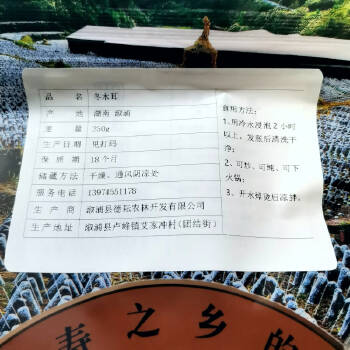 品 名 冬木耳
产 地 湖南 溆浦
重 量 250g
生产日期 见打码
保 质 期 18个月
储藏方法 干燥、通风阴凉处
服务电话 13974551178
生 产 商 溆浦县德耘农林开发有限公司
生产地址 溆浦县卢峰镇艾家冲村(团结街)
食用方法:
1、用冷水浸泡2小时
以上,发胀后清洗干
净;
2、可炒、可炖、可下
火锅;
3、开水焯烫后凉拌。
寿之乡的